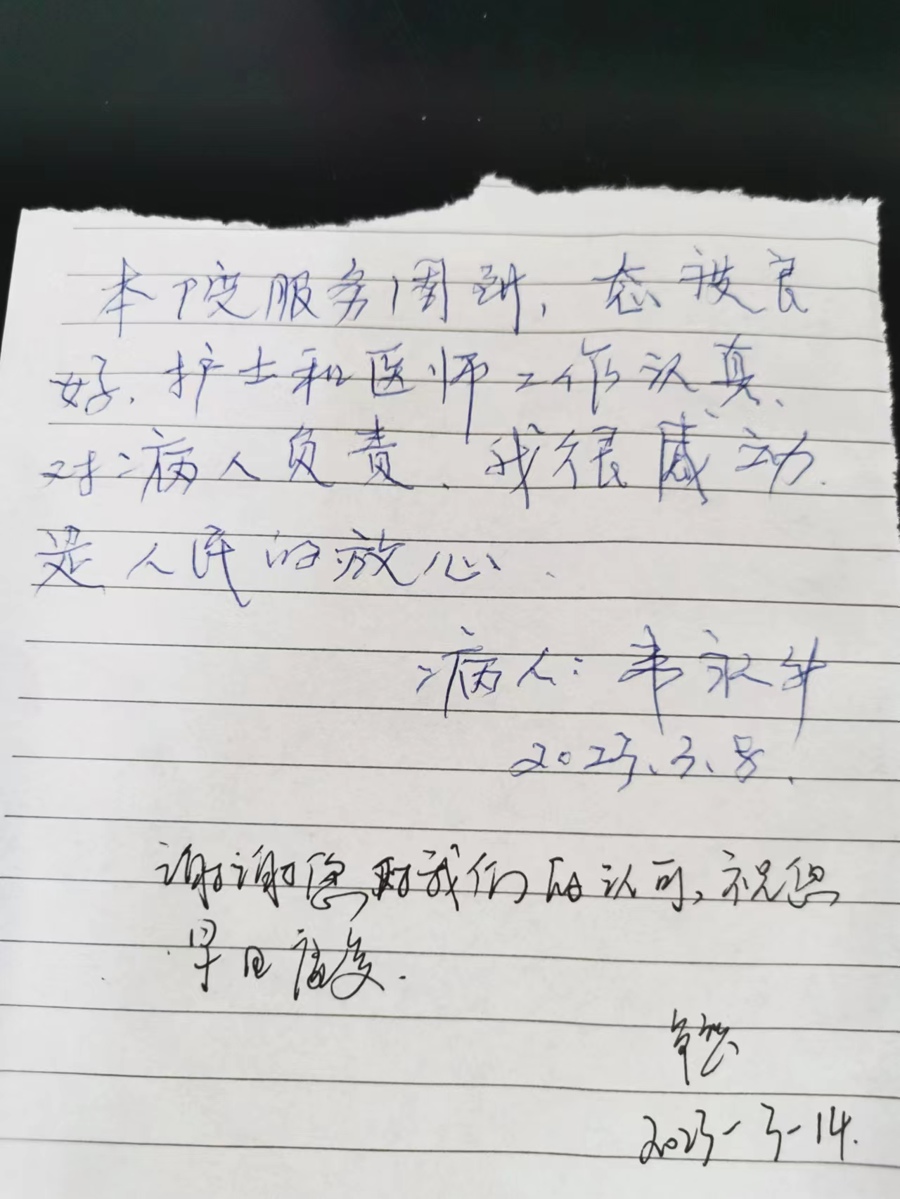 本院服务周到，态度良
好．护士和医师工作认真、
对病人负责、我很感动．
是人民的放心、
病人：韦永
2023、3、8、
谢谢您对我们的认可，祝您
早日康复．
2023-3-14.